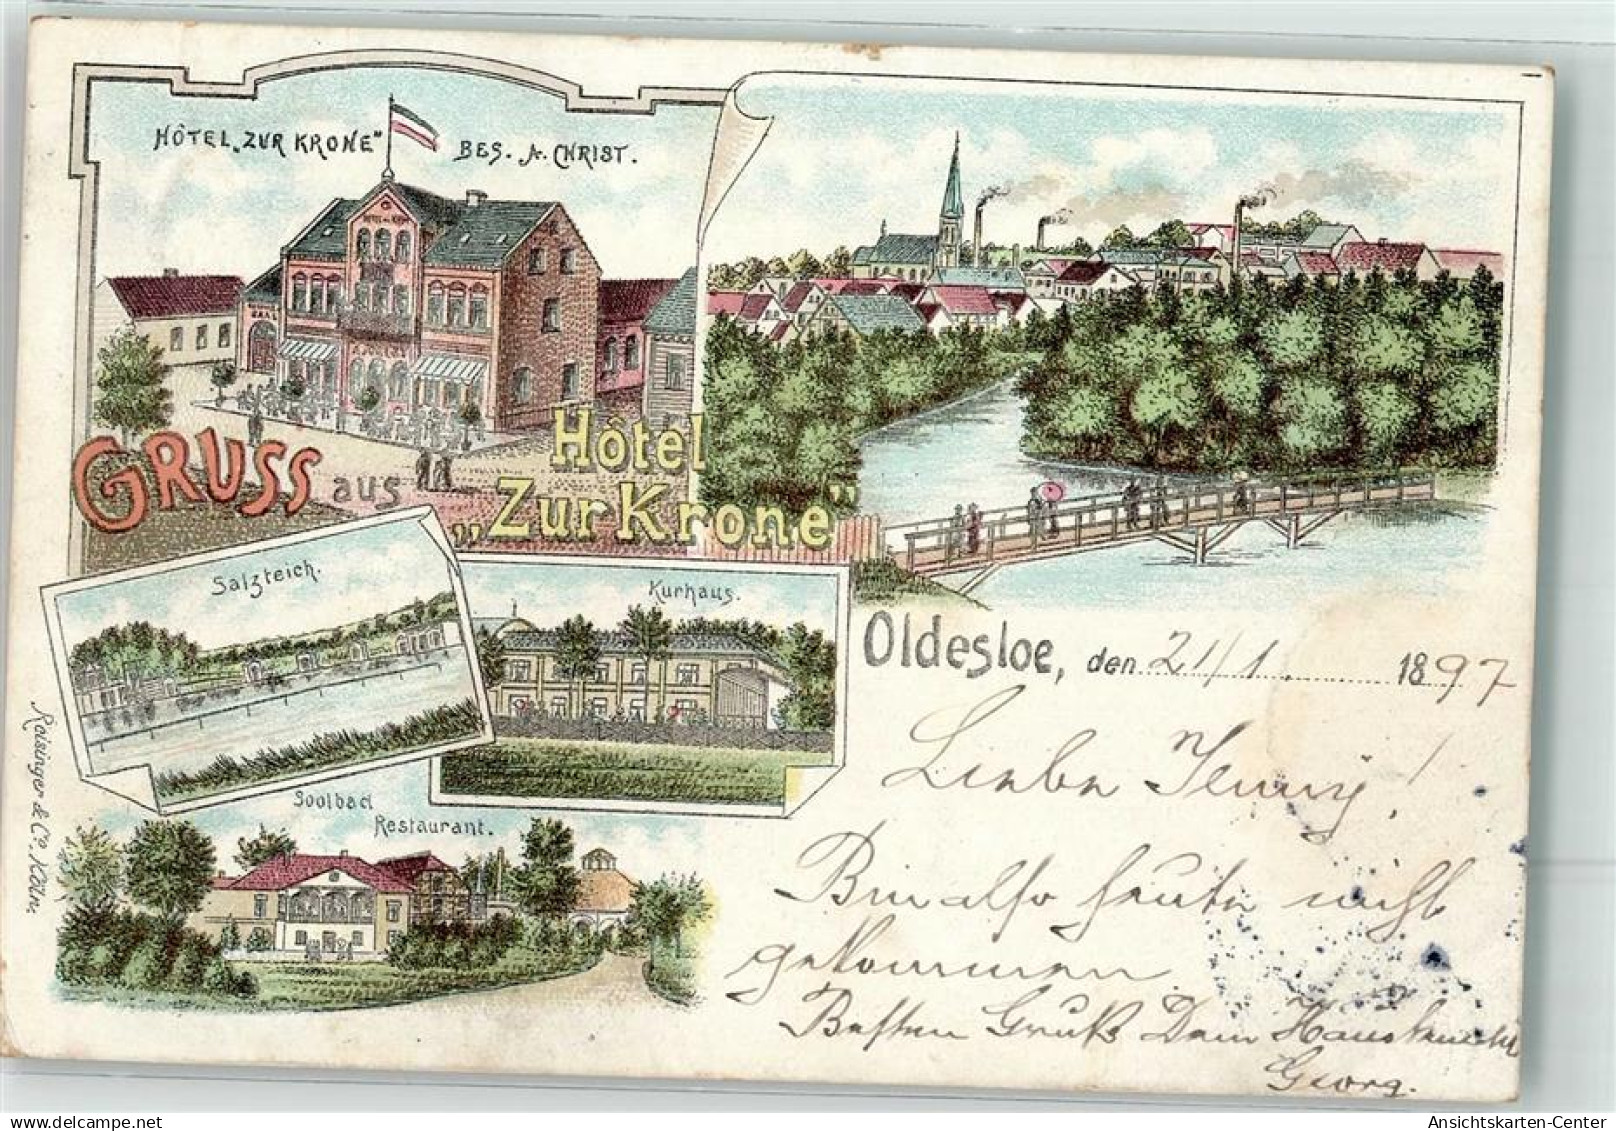 HÔTEL „ZUR KRONE" BES. A. CHRIST.
GRUSS aus Hôtel
„Zur Krone"
Salzteich.
Kurhaus.
Soolbad
Restaurant.
Oldesloe, den 21/1. 1897
Liebe Jenny!
Bin also heute nicht
gekommen
Besten Gruß Dein
Georg.
Rosinger & Co. Köln.
Ansichtskarten-Center